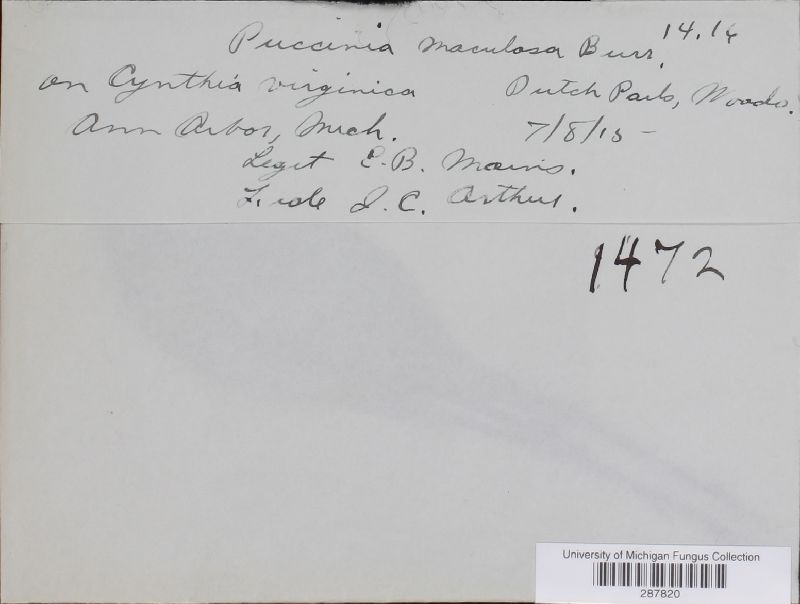 Puccinia maculosa Burr. 14.16
on Cynthia virginica Dutch Park, Woods.
Ann Arbor, Mich. 7/8/15
Legit E.B. Mains.
Fide J.C. Arthur.
1472
University of Michigan Fungus Collection
287820